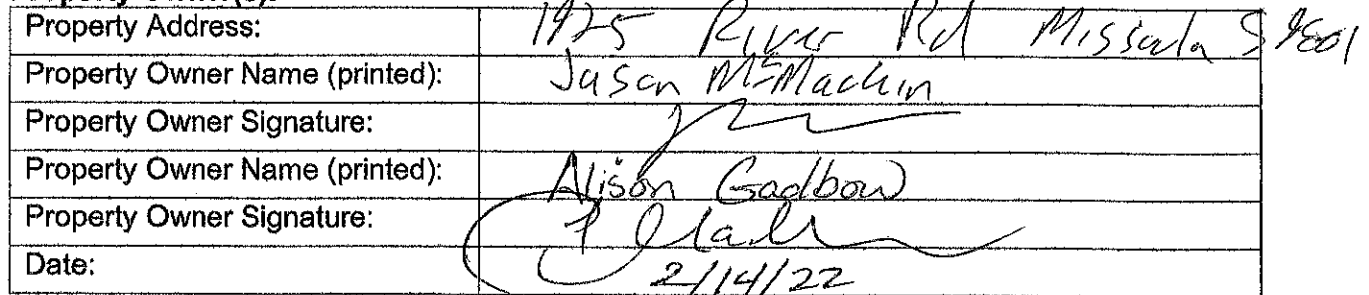 Property Address: 1925 River Rd Missoula 59801
Property Owner Name (printed): Jason McMachin
Property Owner Signature:
Property Owner Name (printed): Alison Gadbow
Property Owner Signature:
Date: 2/14/22